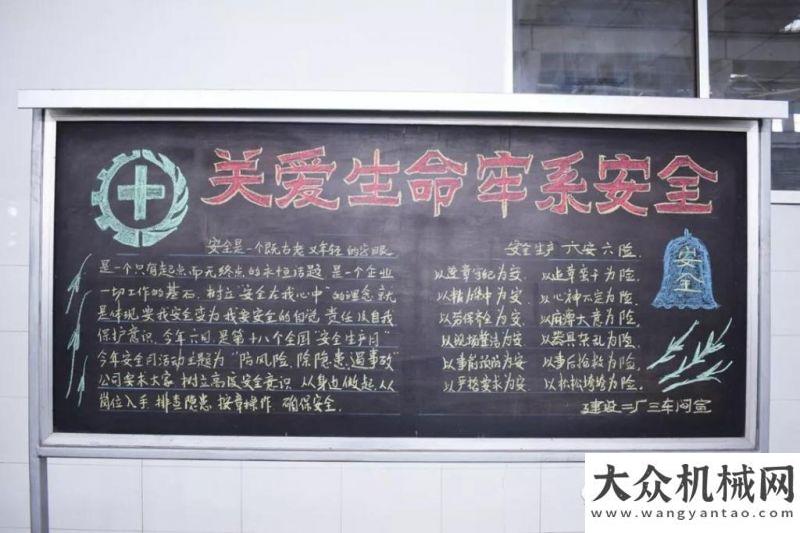 关爱生命牢系安全
安全是一个既古老又年轻的字眼
是一个只有起点而无终点的永恒话题 是一个企业
一切工作的基石.树立"安全在我心中"的理念就
是体现要我安全变为我要安全的自觉责任及自我
保护意识.今年六月是第十八个全国"安全生产月"
今年安全月活动主题为"防风险,除隐患,遏事故"
公司要求大家 树立高度安全意识 从身边做起 从
岗位入手 排查隐患 按章操作 确保安全.
安全生产 六安六险.
以遵章守纪为安. 以违章蛮干为险.
以精力集中为安. 以心神不定为险.
以劳保齐全为安. 以麻痹大意为险.
以现场整洁为安. 以器具杂乱为险.
以事前预防为安 以事后抢救为险
以严格要求为安 以松松垮垮为险.
建设二厂三车间宣
安全
大众机械网
www.wangyantao.com